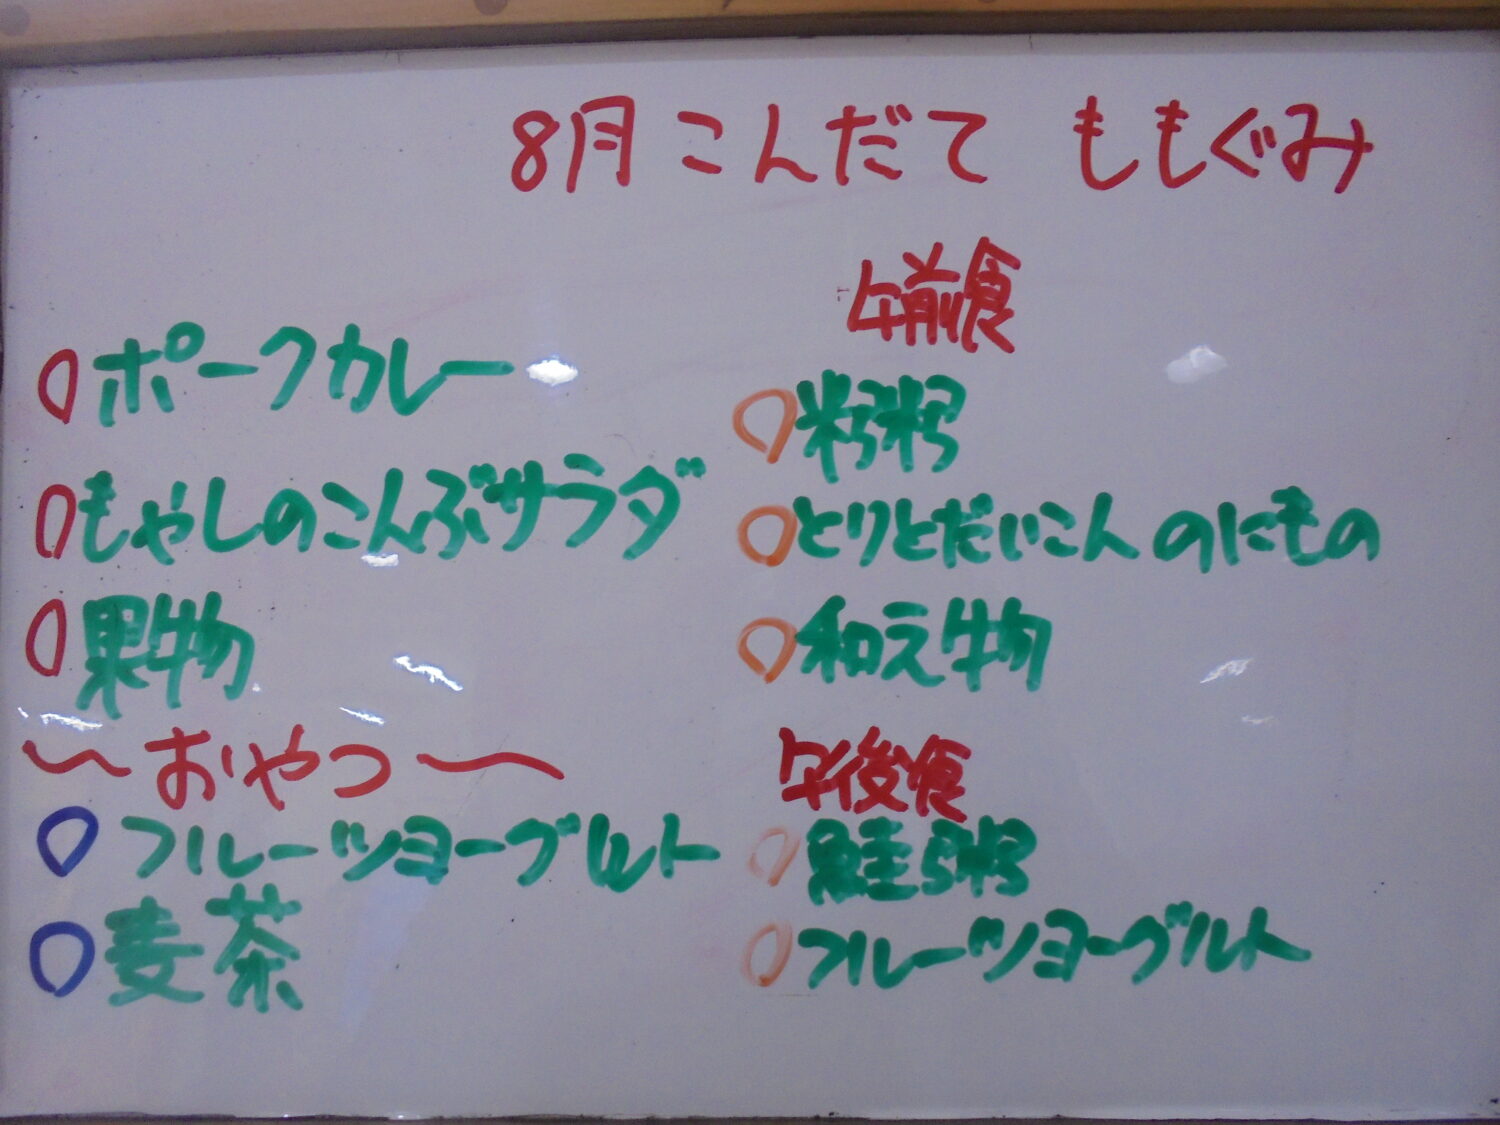 8月 こんだて ももぐみ
ポークカレー
もやしのこんぶサラダ
果物
〜おやつ〜
フルーツヨーグルト
麦茶
午前食
粥
とりとだいこんのにもの
和え物
午後食
鮭粥
フルーツヨーグルト